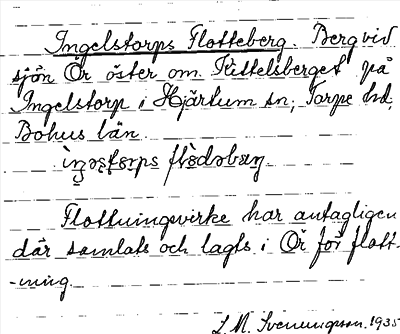 Ingelstorps Flotteberg. Berg vid
sjön Ör öster om Kittelsberget på
Ingelstorp i Hjärtum sn, Torpe hd,
Bohus län.
Flottningvirke har antagligen
där samlats och lagts i Ör för flott-
-ning.
L. M. Svenungsson. 1935